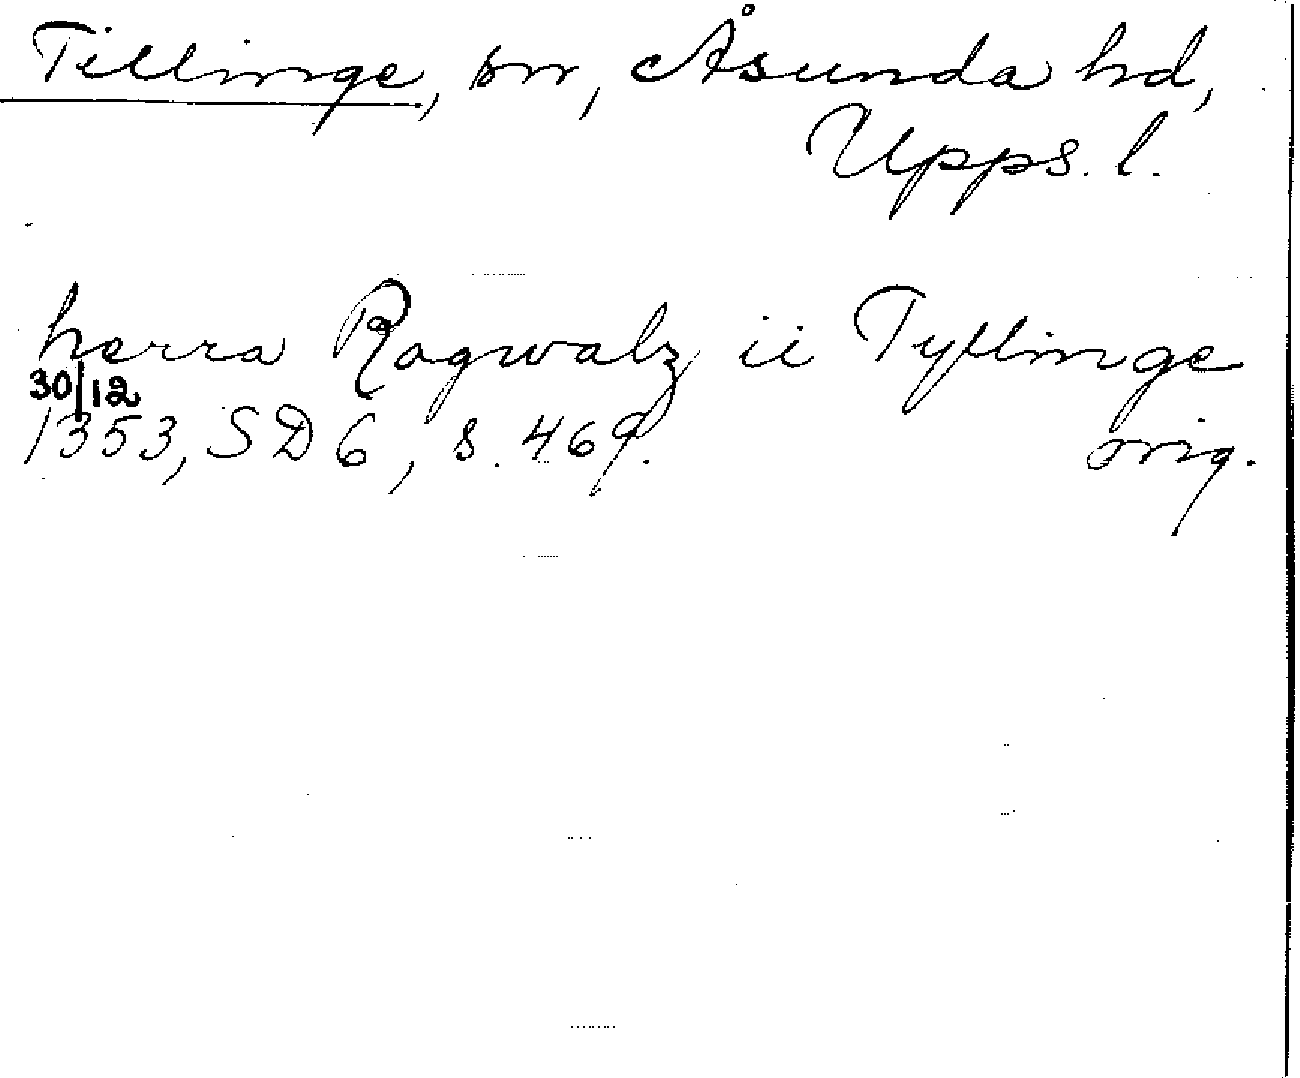 Tillinge, sn, Åsunda hd,
Upps. l.
hærra Ragwalz ii Tyllinge
30/12
1353, SD 6, s. 469. orig.